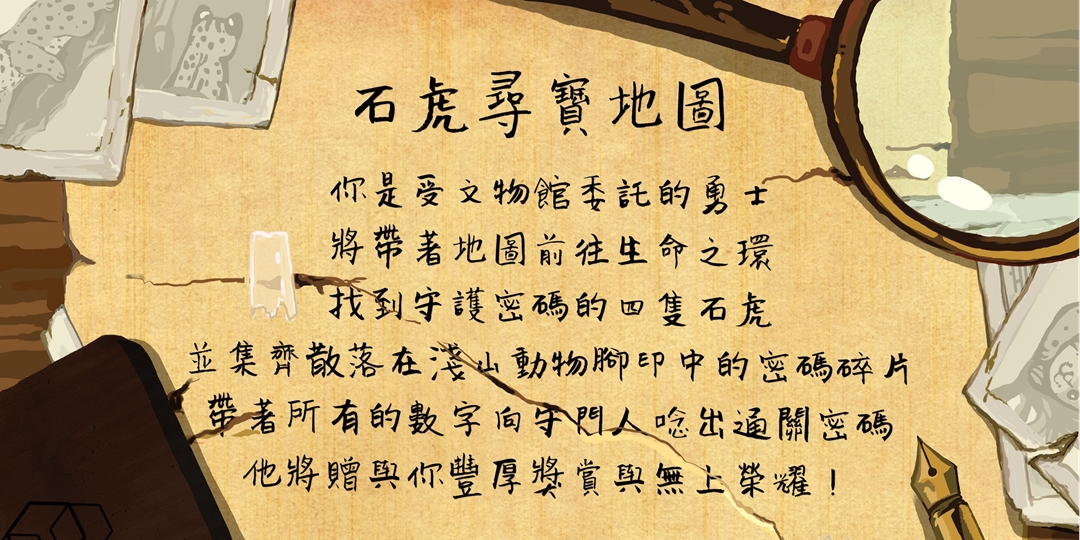 石虎尋寶地圖
你是受文物館委託的勇士
將帶著地圖前往生命之環
找到守護密碼的四隻石虎
並集齊散落在淺山動物腳印中的密碼碎片
帶著所有的數字向守門人唸出通關密碼
他將贈與你豐厚獎賞與無上榮耀！